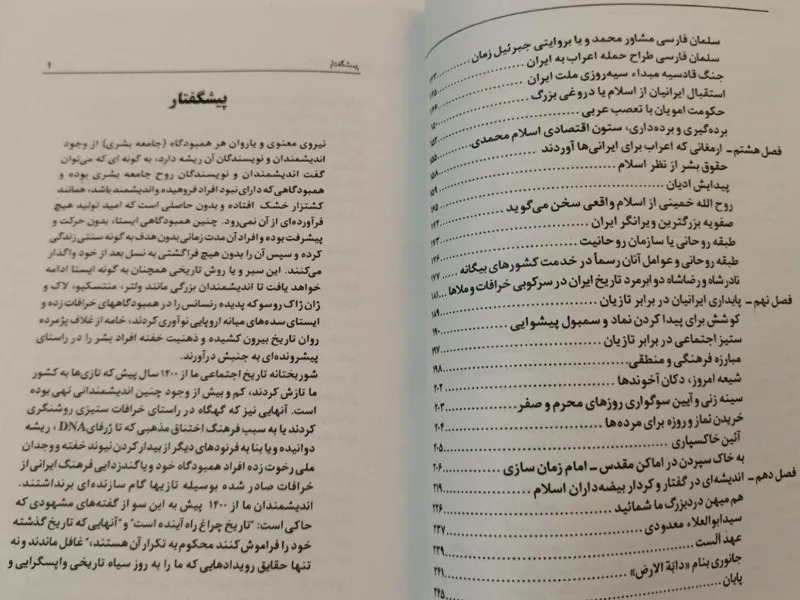 سلمان فارسی مشاور محمد و یا بروایتی جبرئیل زمان
سلمان فارسی طراح حمله اعراب به ایران
جنگ قادسیه مبداء سیه‌روزی ملت ایران
استقبال ایرانیان از اسلام یا دروغی بزرگ
حکومت امویان با تعصب عربی ۱۵۰
برده‌گیری و برده‌داری، ستون اقتصادی اسلام محمدی
فصل هشتم ـ ارمغانی که اعراب برای ایرانی‌ها آوردند ۱۵۵
حقوق بشر از نظر اسلام
پیدایش ادیان ۱۵۹
روح الله خمینی از اسلام واقعی سخن می‌گوید ۱۶۵
صفویه بزرگترین ویرانگر ایران
طبقه روحانی یا سازمان روحانیت
طبقه روحانی و عوامل آنان رسماً در خدمت کشورهای بیگانه ۱۷۷
نادرشاه و رضاشاه دو ابرمرد تاریخ ایران در سرکوبی خرافات و ملاها ۱۸۱
فصل نهم ـ پایداری ایرانیان در برابر تازیان ۱۸۹
کوشش برای پیدا کردن نماد و سمبول پیشوایی ۱۹۰
ستیز اجتماعی در برابر تازیان ۱۹۷
مبارزه فرهنگی و منطقی ۱۹۸
شیعه امروز، دکان آخوندها ۲۰۲
سینه زنی و آیین سوگواری روزهای محرم و صفر ۲۰۳
خریدن نماز و روزه برای مرده‌ها ۲۰۴
آئین خاکسپاری ۲۰۵
به خاک سپردن در اماکن مقدس ـ امام زمان سازی ۲۰۶
فصل دهم ـ اندیشه‌ای در گفتار و کردار بیضه‌داران اسلام ۲۱۹
هم میهن دردبزرگ ما شمائید ۲۲۶
سیدابوالعلاء معدودی ۲۳۷
عهد الست ۲۳۹
جانوری بنام «دابّة الارض» ۲۴۱
پایان ۲۴۵
پیشگفتار ۹
پیشگفتار
نیروی معنوی و یاروان هر همبودگاه (جامعه بشری) از وجود
اندیشمندان و نویسندگان آن ریشه دارد، به گونه ای که می‌توان
گفت اندیشمندان و نویسندگان روح جامعه بشری بوده و
همبودگاهی که دارای نبود افراد فروهیده و اندیشمند باشد، همانند
کشتزار خشک افتاده و بدون حاصلی است که امید تولید هیچ
فرآورده‌ای از آن نمی‌رود. چنین همبودگاهی ایستا، بدون حرکت و
پیشرفت بوده و افراد آن مدت زمانی بدون هدف به گونه سنتی زندگی
کرده و سپس آن را بدون هیچ فراگشتی به نسل بعد از خود واگذار
می‌کنند. این سیر و یا روش تاریخی همچنان به گونه ایستا ادامه
خواهد یافت تا اندیشمندان بزرگی مانند ولتر، منتسکیو، لاک و
ژان ژاک روسو که پدیده رنسانس را در همبودگاههای خرافات زده و
ایستای سده‌های میانه اروپایی نوآوری کردند، خامه از غلاف پژمرده
روان تاریخ بیرون کشیده و ذهنیت خفته افراد بشر را در راستای
پیشرونده‌ای به جنبش درآورند.
شوربختانه تاریخ اجتماعی ما از ۱۴۰۰ سال پیش که تازی‌ها به کشور
ما تازش کردند، کم و بیش از وجود چنین اندیشمندانی تهی بوده
است. آنهایی نیز که گهگاه در راستای خرافات ستیزی روشنگری
کردند یا به سبب فرهنگ اختناق مذهبی که تا ژرفای DNA، ریشه
دوانیده و یا بنا به فرنودهای دیگر از بیدار کردن نیوند خفته و وجدان
ملی رخوت زده افراد همبودگاه خود و یا گندزدایی فرهنگ ایرانی از
خرافات صادر شده بوسیله تازیها گام سازنده‌ای برنداشتند.
اندیشمندان ما از ۱۴۰۰ پیش به این سو از گفته‌های مشهودی که
حاکی است: "تاریخ چراغ راه آینده است" و "آنهایی که تاریخ گذشته
خود را فراموش کنند محکوم به تکرار آن هستند،" غافل ماندند و نه
تنها حقایق رویدادهایی که ما را به روز سیاه تاریخی واپسگرایی و